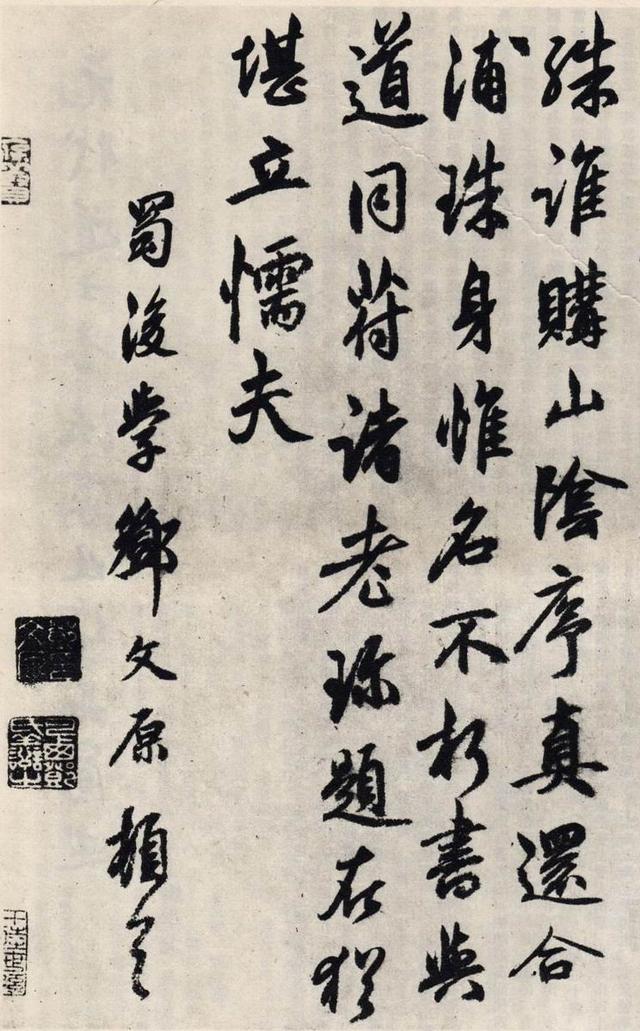 殊誰購山陰序真還合
浦珠身惟名不朽書與
道同符諸老珎題在猶
堪立懦夫
蜀後學鄧文原頓首